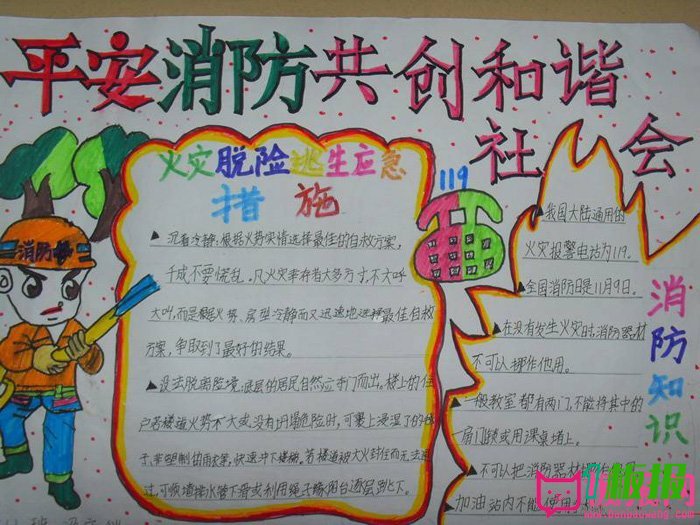 平安消防共创和谐
社会
火灾脱险逃生应急
措施
119
消防
▲沉着冷静:根据火势实情选择最佳的自救方案,
千成不要慌乱。凡火灾幸存者大多方寸,不大呼
大叫,而是根据火势、房型冷静而又迅速地选择最佳自救
方案,争取到了最好的结果。
▲设法脱离险境,底层的居民自然应夺门而出。楼上的住
户若楼道火势不大或没有坍塌危险时,可裹上浸湿了的
塑制的雨衣等,快速冲下楼梯。若楼道被大火封住而无法
过,可顺墙排水管下滑或利用绳子缘阳台逐层
▲我国大陆通用的
火灾报警电站为119。
▲全国消防日是11月9日。
▲在没有发生火灾时,消防器材
不可以挪作他用。
▲一般教室都有两门,不能将其中的
一扇门锁或用课桌堵上。
▲不可以把消防器材
加油站内不能使用
消防知识
板报
www.banbaowang.com